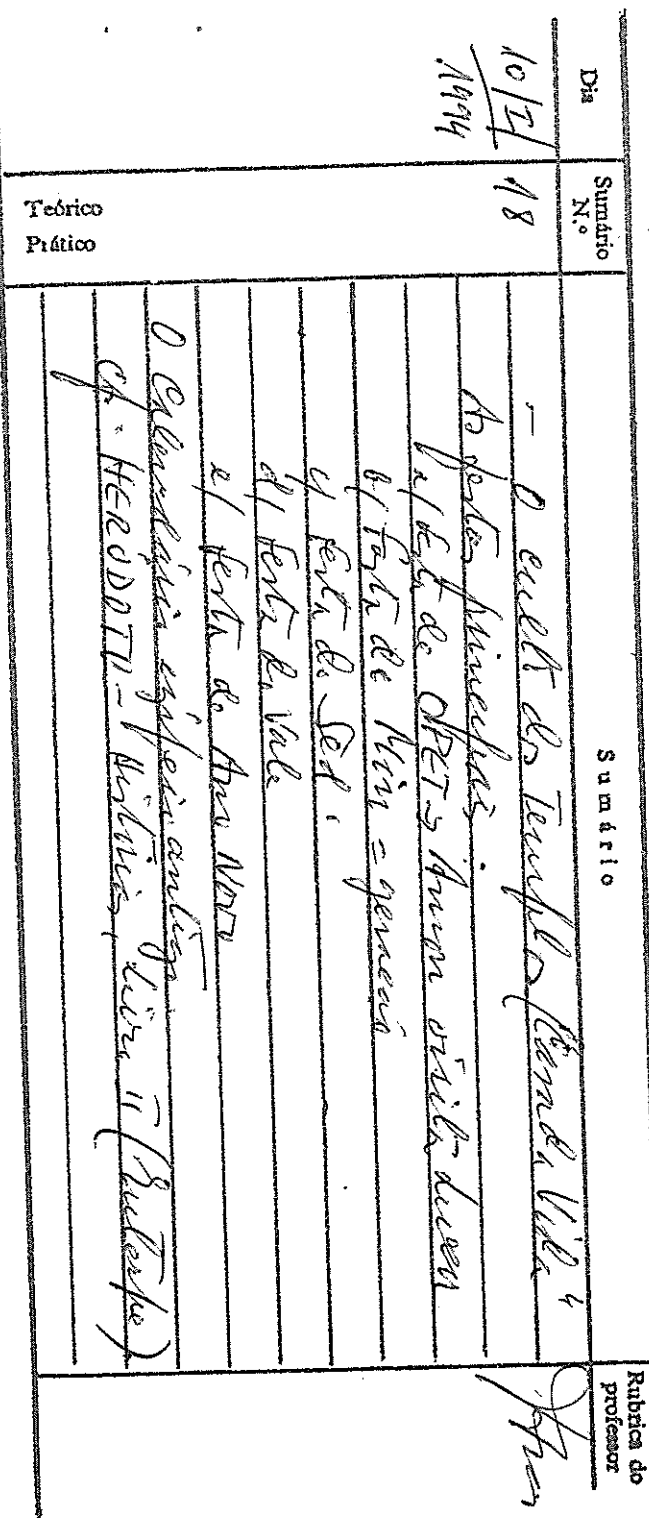 Dia
Sumário N.º
Sumário
Rubrica do professor
10/I/
1994
18
Teórico
Prático
- O culto dos Templos ("Casa da Vida"
As festas principais:
a/ festa de OPET → Amon visita Luxor
b/ Festa de Min = geração
c/ festa do Sed
d/ Festa do Vale
e/ festa do Ano Novo
O Calendário egípcio antigo
cf. HERÓDOTO - Histórias, Livro II (Euterpe)